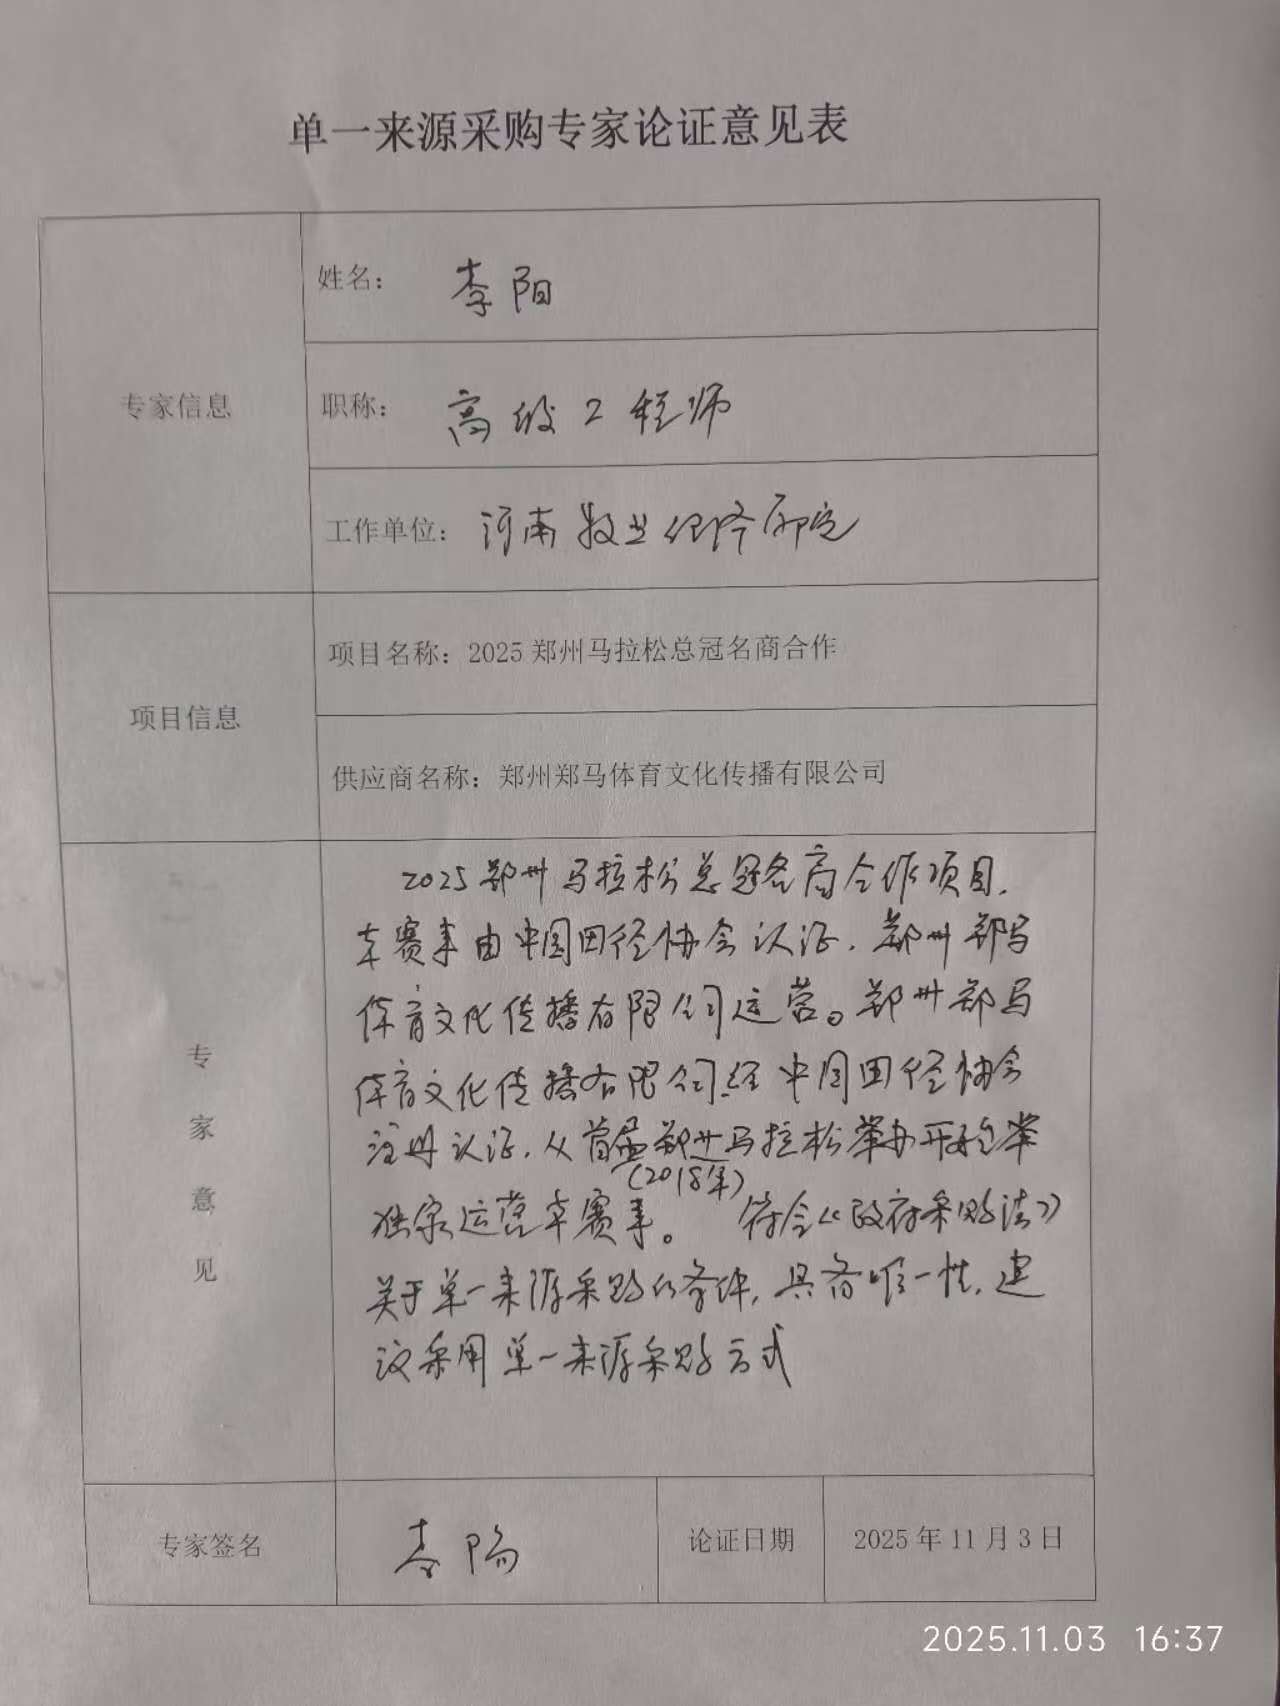 单一来源采购专家论证意见表
专家信息
姓名： 李阳
职称： 高级工程师
工作单位： 河南牧业经济学院
项目信息
项目名称：2025郑州马拉松总冠名商合作
供应商名称：郑州郑马体育文化传播有限公司
专家意见
2025郑州马拉松总冠名商合作项目，
本赛事由中国田径协会认证，郑州郑马
体育文化传播有限公司运营。郑州郑马
体育文化传播有限公司经中国田径协会
注册认证，从首届郑州马拉松举办开始
(2018年)
独家运营本赛事。 符合《政府采购法》
关于单一来源采购的条件，具备唯一性，建
议采用单一来源采购方式
专家签名 李阳 论证日期 2025年11月3日
2025.11.03 16:37